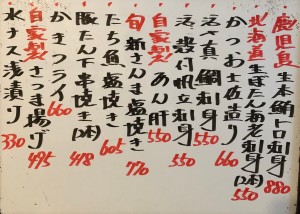 鹿児島 生本鮪トロ刺身 880
北海道 生ぼたん海老刺身(2本) 550
かつお土佐造り 660
活〆真鯛刺身 550
活殻付帆立刺身 550
自家製 あん肝 550
旬 新さんま塩焼き 770
たち魚塩焼き 605
豚たん下串焼き(2本) 418
かきフライ 660
自家製 さつま揚げ 495
水ナス浅漬り 330